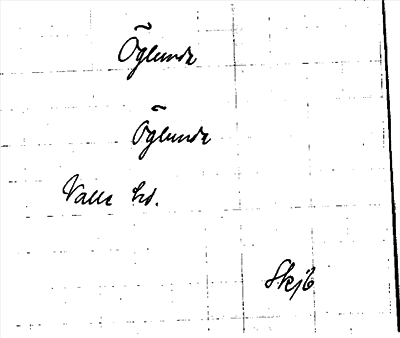 Öglunda
Öglunda
Valle hd.
Skjb